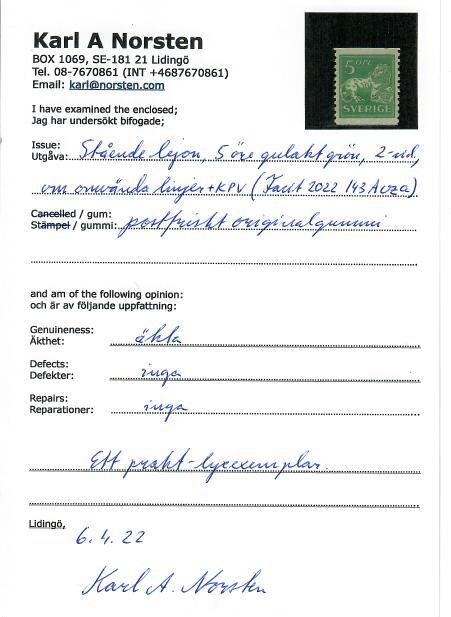 Karl A Norsten
BOX 1069, SE-181 21 Lidingö
Tel. 08-7670861 (INT +4687670861)
Email: karl@norsten.com
5 ÖRE
SVERIGE
I have examined the enclosed;
Jag har undersökt bifogade;
Issue:
Utgåva: Stående lejon, 5 öre gulaktgrön, 2-sid,
vm omvända linjer + KPV (Facit 2022 143Acxz)
Cancelled / gum:
Stämpel / gummi: postfriskt originalgummi
and am of the following opinion:
och är av följande uppfattning:
Genuineness:
Äkthet: äkta
Defects:
Defekter: inga
Repairs:
Reparationer: inga
Ett prakt-lyxexemplar.
Lidingö,
6.4.22
Karl A. Norsten